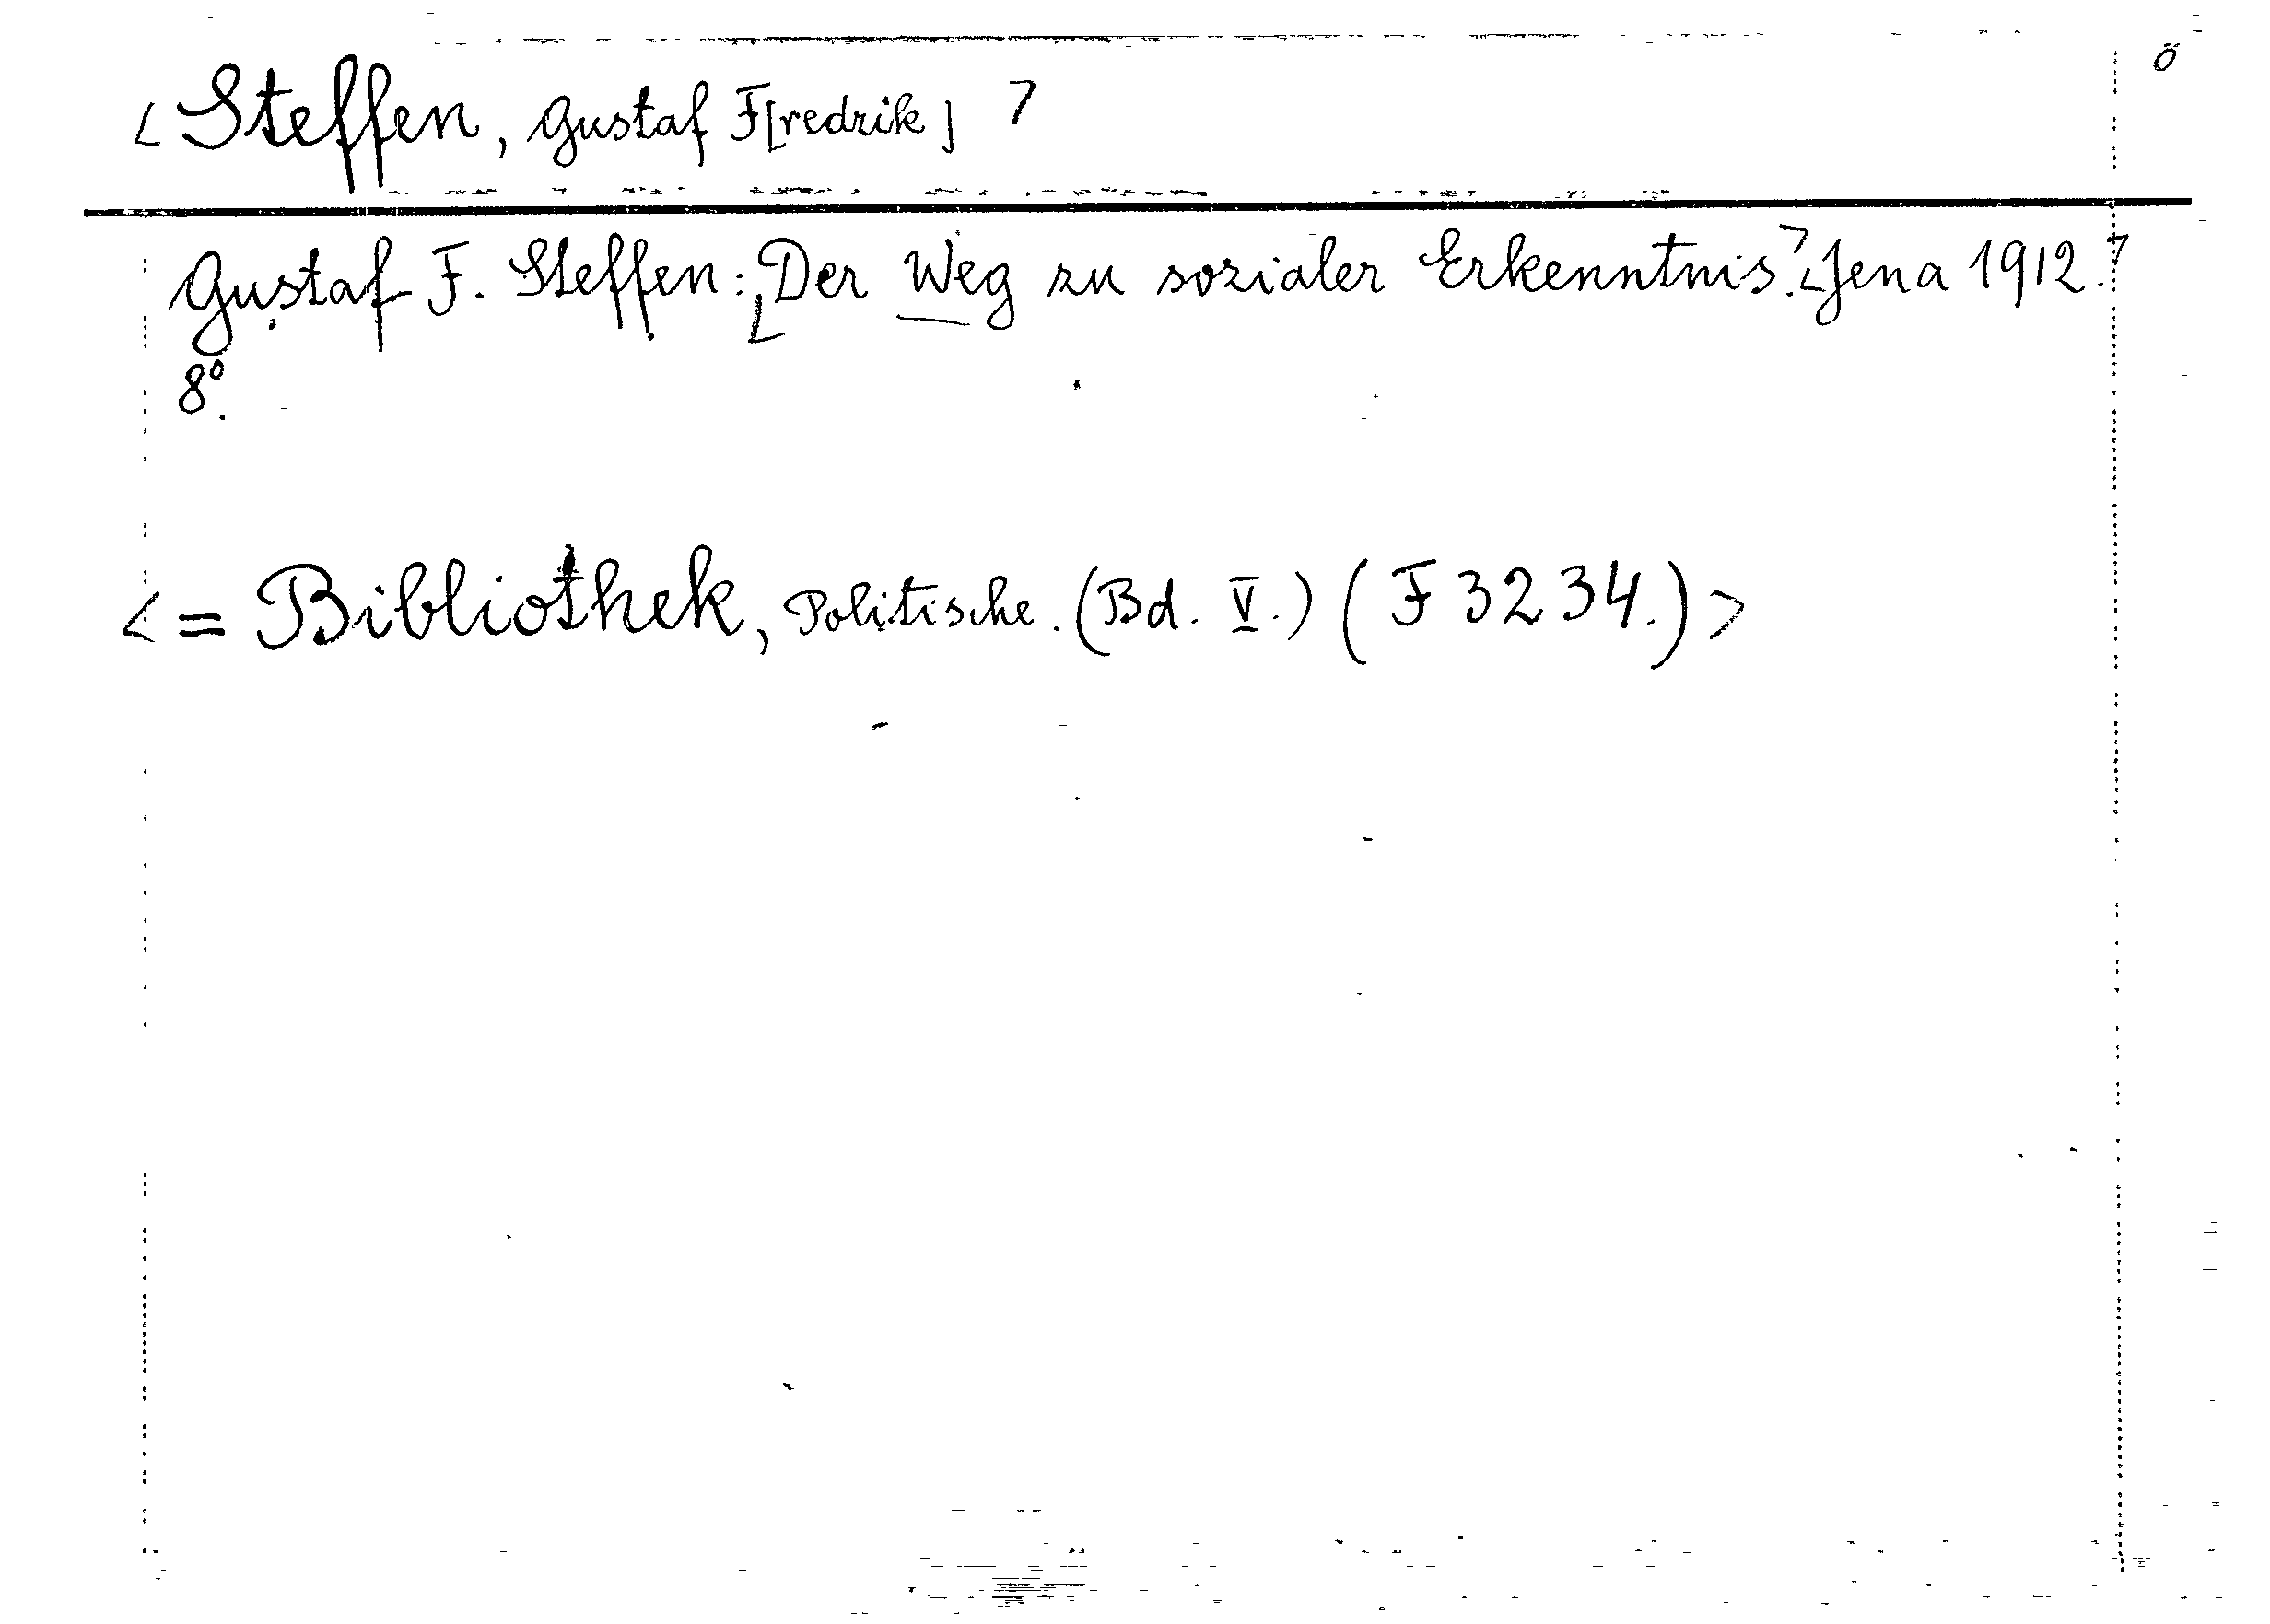 ö
<Steffen, Gustaf F[redrik]>
Gustaf F. Steffen: <Der Weg zu sozialer Erkenntnis.> <Jena 1912.>
8º.
<= Bibliothek, Politische. (Bd. V.) (F 3234.)>